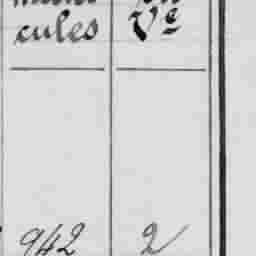 cules Ve
942 2